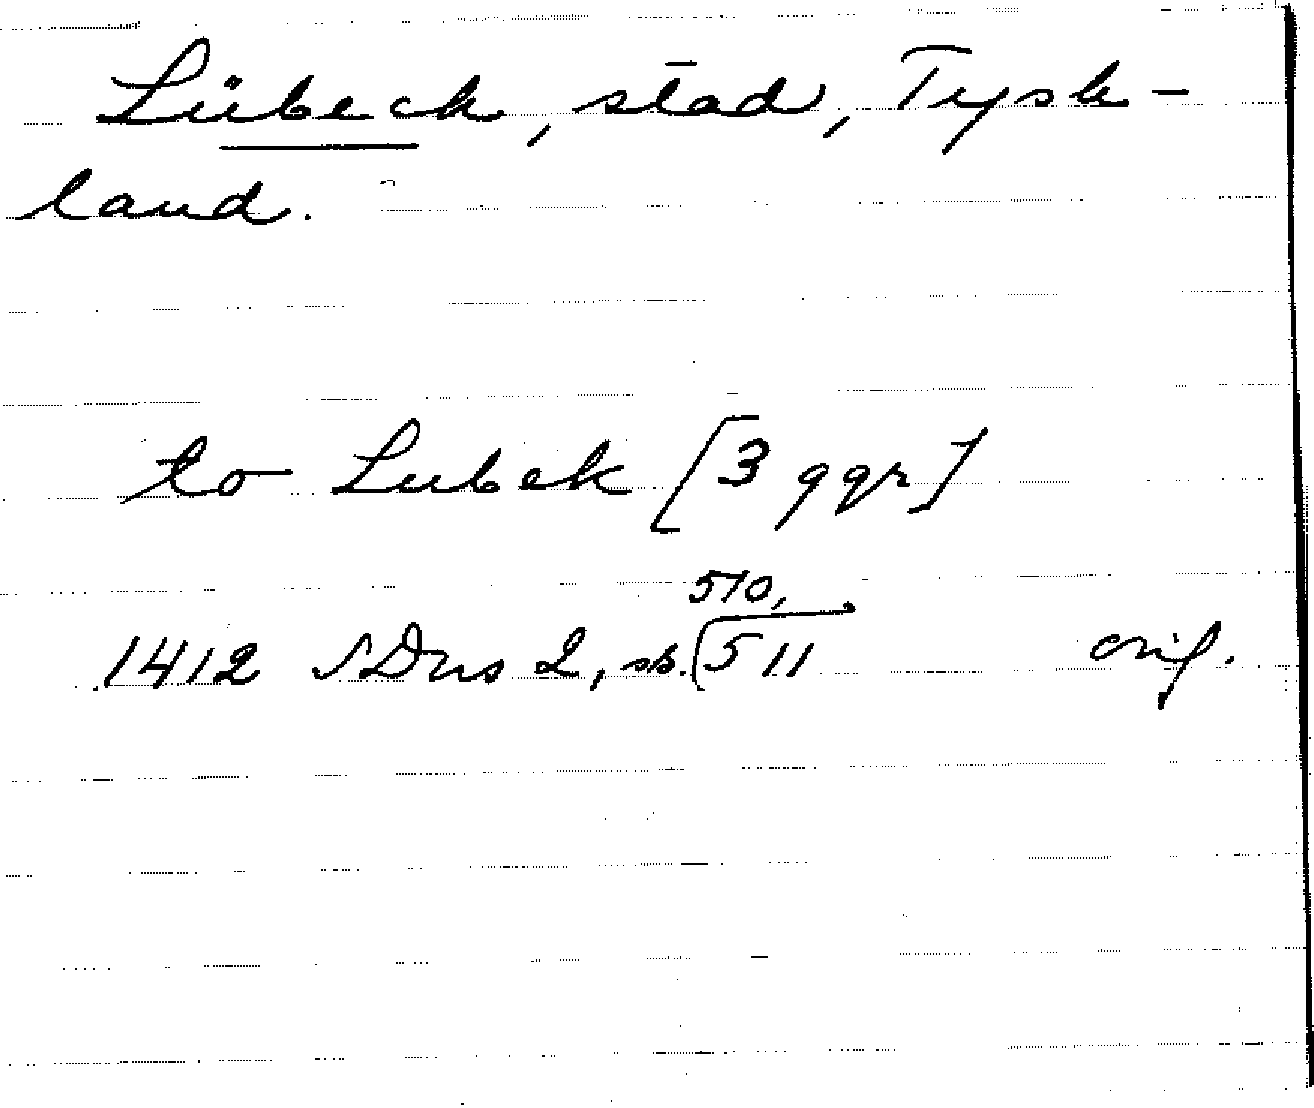 Lübeck, stad, Tysk-
land.
to Lubek [3 ggr]
510,
1412 SDns 2, sp. 511 orig.